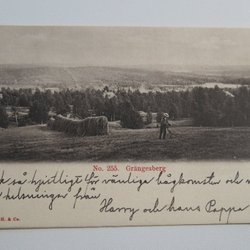 No. 255. Grängesberg
så hjertligt för vänliga hågkomsten och
helsningar från
Harry och hans Pappa
H. & Co.